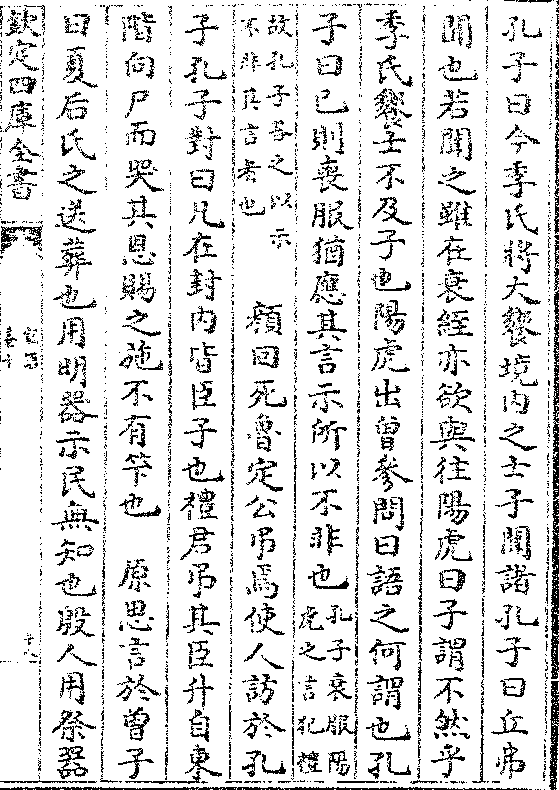 孔子曰今季氏將大饗境内之士子聞諸孔子曰丘弗
聞也若聞之雖在衰絰亦欲與往陽虎曰子謂不然乎
季氏饗士不及子也陽虎出曾參問曰語之何謂也孔
子曰已則喪服猶應其言示所以不非也孔子衰服陽
虎之言犯禮
故孔子答之以示
不非其言者也
顔回死魯定公吊焉使人訪於孔
子孔子對曰凡在封内皆臣子也禮君吊其臣升自東
階向尸而哭其恩賜之施不有笇也　原思言於曾子
曰夏后氏之送葬也用明器示民無知也殷人用祭器
欽定四庫全書